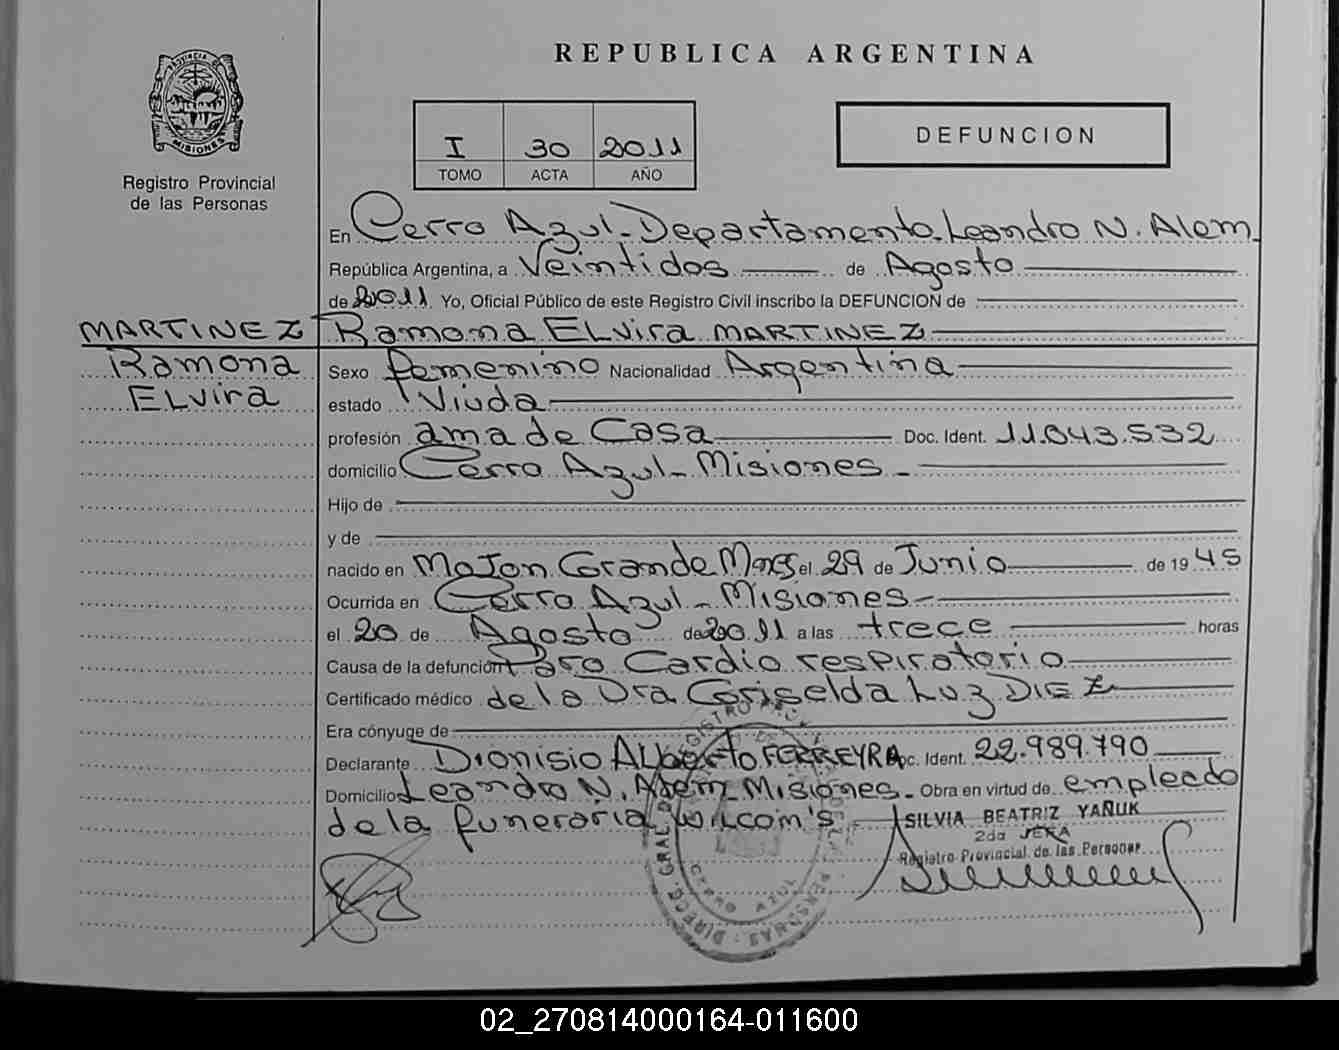 REPUBLICA ARGENTINA
PROVINCIA DE
MISIONES
Registro Provincial
de las Personas
I 30 2011
TOMO ACTA AÑO
DEFUNCION
En Cerro Azul - Departamento Leandro N. Alem
República Argentina, a Veintidos de Agosto
de 2011 Yo, Oficial Público de este Registro Civil inscribo la DEFUNCION de
MARTINEZ Ramona Elvira MARTINEZ
Ramona
Elvira
Sexo femenino Nacionalidad Argentina
estado Viuda
profesión ama de Casa Doc. Ident. 11.043.532
domicilio Cerro Azul - Misiones -
Hijo de
y de
nacido en Mojon Grande Mnes el 29 de Junio de 1945
Ocurrida en Cerro Azul - Misiones -
el 20 de Agosto de 2011 a las trece horas
Causa de la defunción Paro Cardio respiratorio
Certificado médico de la Dra Griselda Luz DIEZ
Era cónyuge de
Declarante Dionisio Alberto FERREYRA Doc. Ident. 22.989.790
Domicilio Leandro N. Alem - Misiones - Obra en virtud de empleado
de la funeraria Wilcom's
SILVIA BEATRIZ YAÑUK
2da JEFA
Registro Provincial de las Personas
CERRO AZUL
02_270814000164-011600